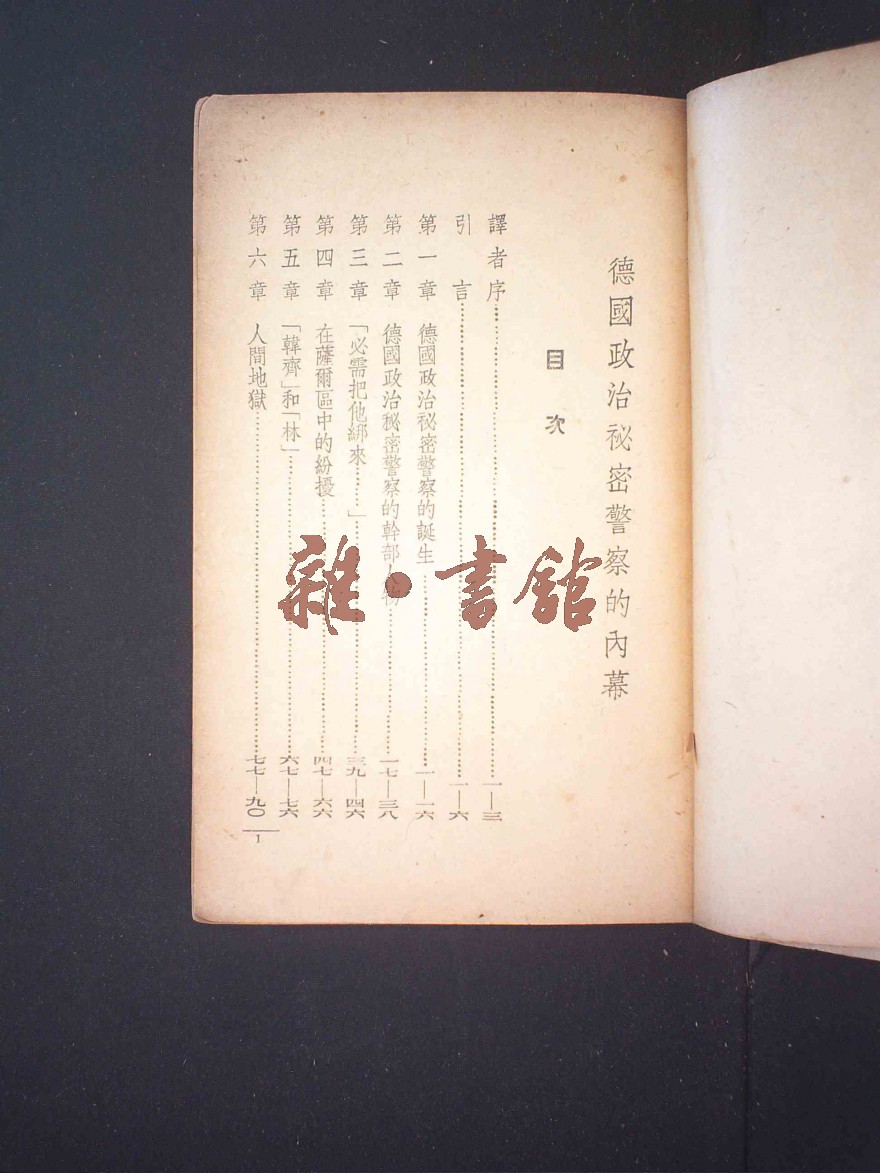 德國政治祕密警察的內幕
目次
譯者序……一—三
引言……一—六
第一章 德國政治祕密警察的誕生……一—一六
第二章 德國政治秘密警察的幹部人物……一七—三八
第三章 「必需把他綁來……」……三九—四六
第四章 在薩爾區中的紛擾……四七—六六
第五章 「韓齊」和「林」……六七—七六
第六章 人間地獄……七七—九〇
1
雜·書館